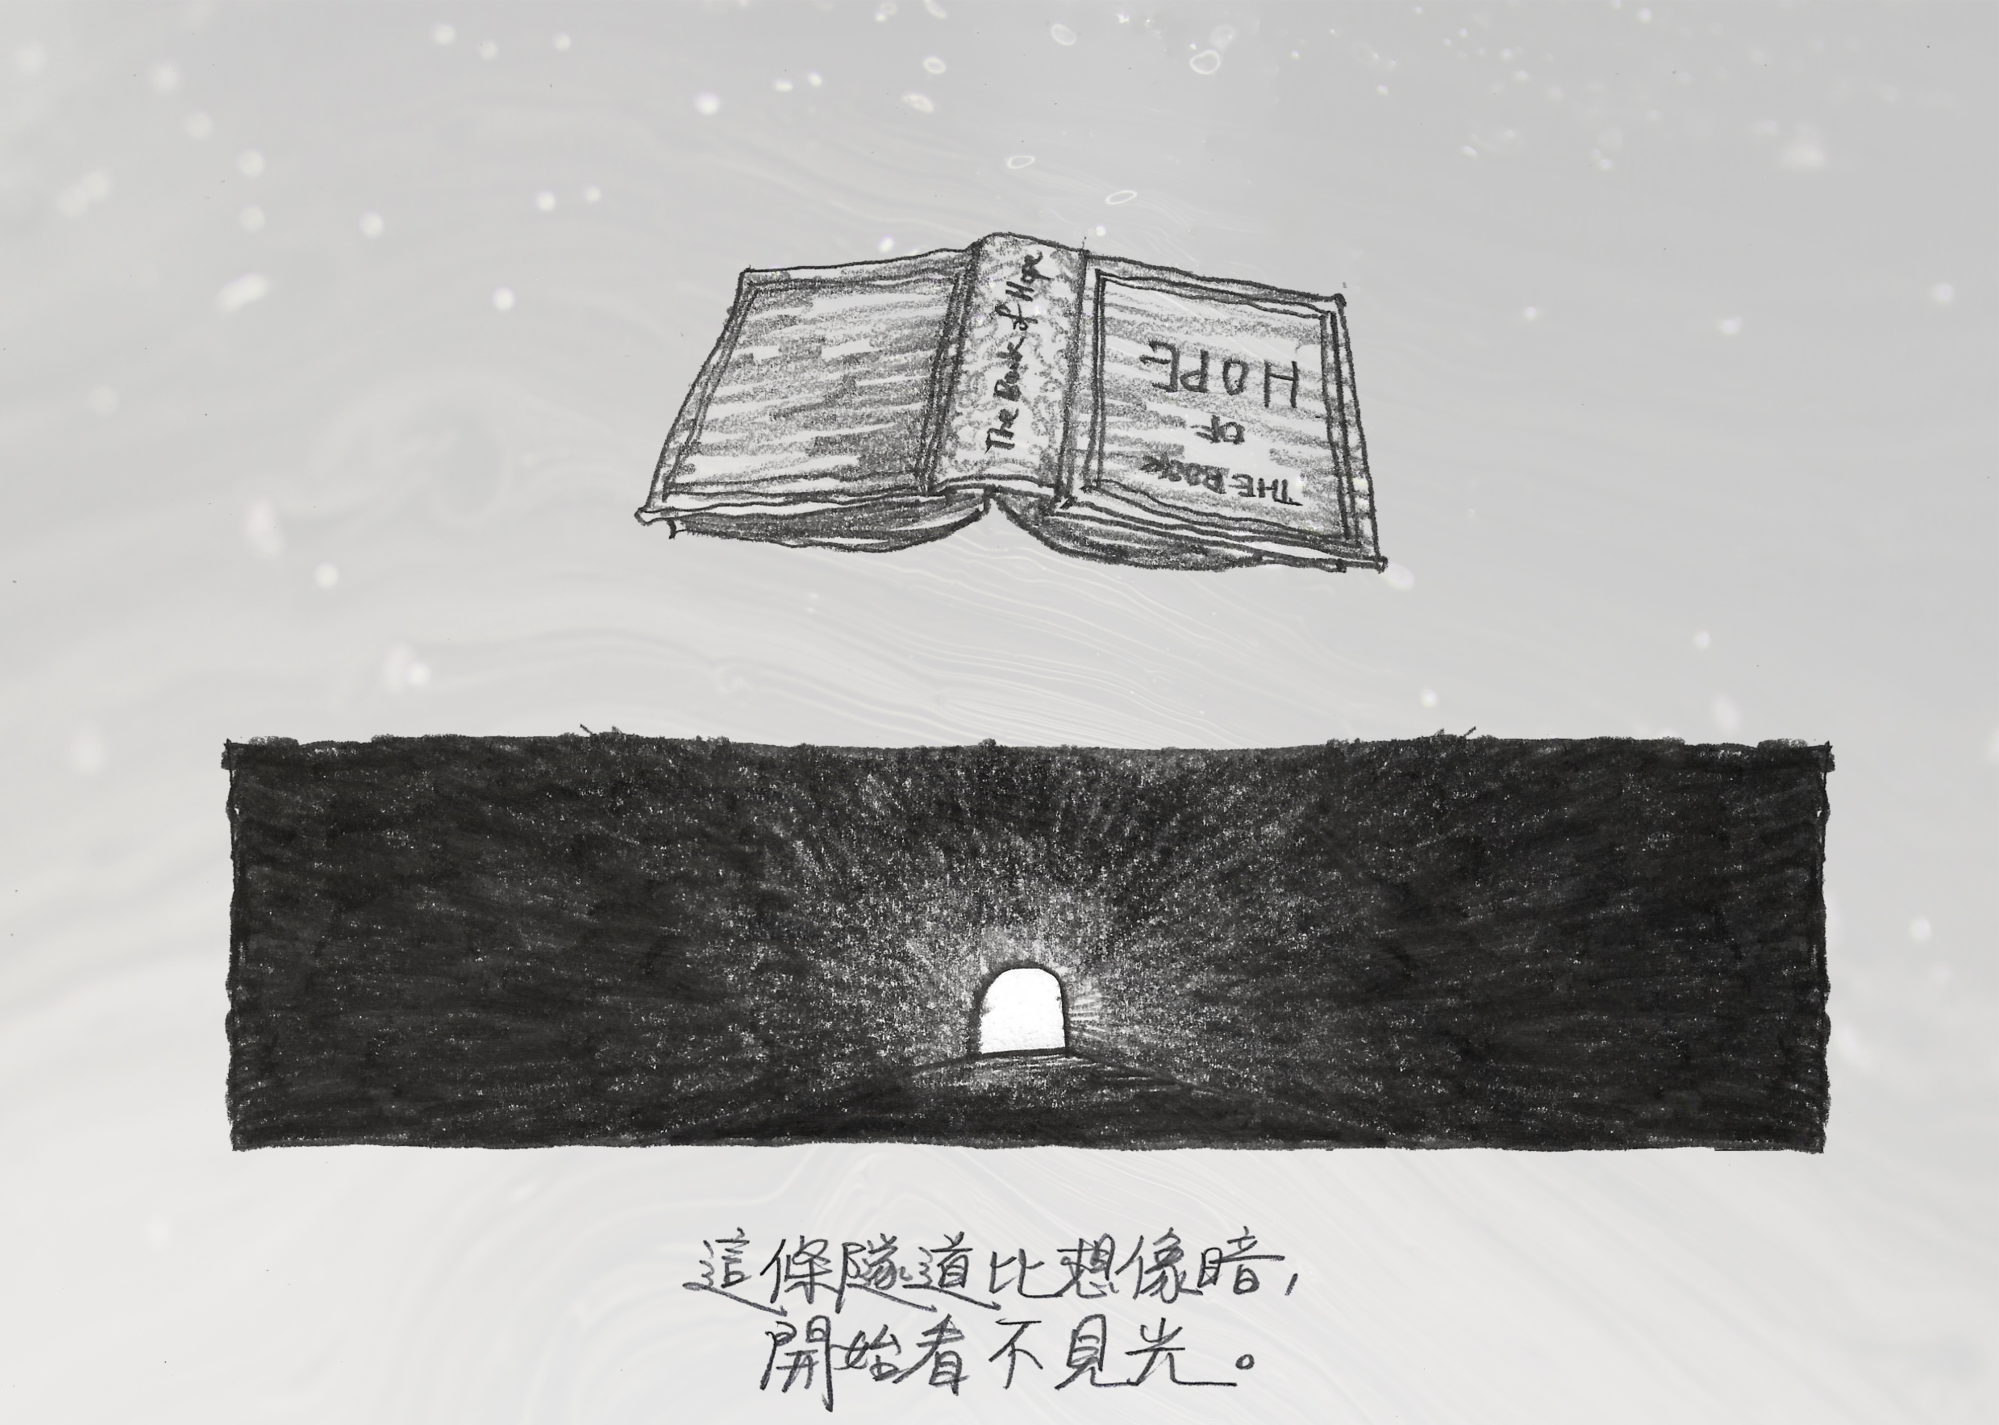 The Book of Hope
THE BOOK
OF
HOPE
這條隧道比想像暗,
開始看不見光。